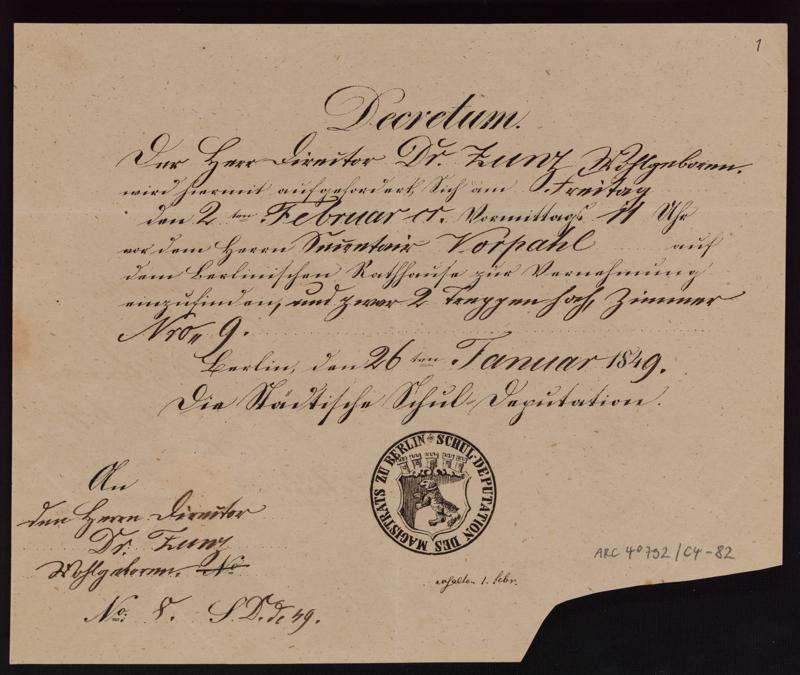 1
Decretum.
Der Herr Director Dr. Zunz Wohlgeboren.
wird hiermit aufgefordert, Sich am Freitag
den 2ten Februar cr. Vormittags 11 Uhr
vor dem Herrn Secretair Vorpahl auf
dem Berlinischen Rathhause zur Vernehmung
einzufinden, und zwar 2 Treppen hoch, Zimmer
Nro 9.
Berlin, den 26ten Januar 1849.
Die Städtische Schul-Deputation.
SCHUL-DEPUTATION DES MAGISTRATS ZU BERLIN
An
den Herrn Director
Dr. Zunz
Wohlgeboren. No
No. 8. S.D. de 49.
erhalten 1. febr.
ARC 4° 792/C4-82